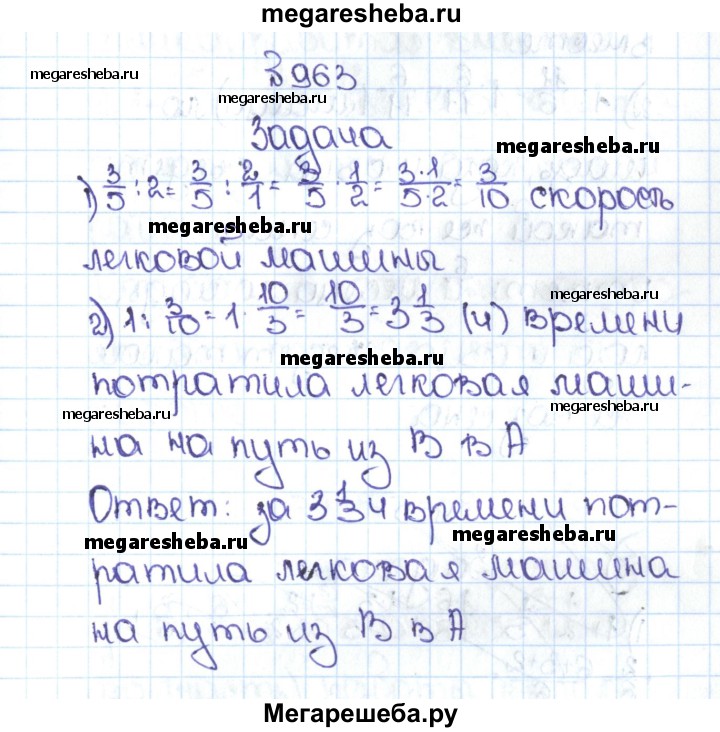 megaresheba.ru
№963
megaresheba.ru
megaresheba.ru
Задача
megaresheba.ru
1) 3/5 : 2 = 3/5 : 2/1 = 3/5 · 1/2 = 3·1/5·2 = 3/10 скорость
megaresheba.ru
легковой машины
megaresheba.ru
2) 1 : 3/10 = 1 · 10/3 = 10/3 = 3 1/3 (ч) времени
megaresheba.ru
потратила легковая маши-
megaresheba.ru
megaresheba.ru
на на путь из В в А
Ответ: за 3 1/3 ч времени пот-
megaresheba.ru
megaresheba.ru
ратила легковая машина
на путь из В в А
Мегарешеба.ру